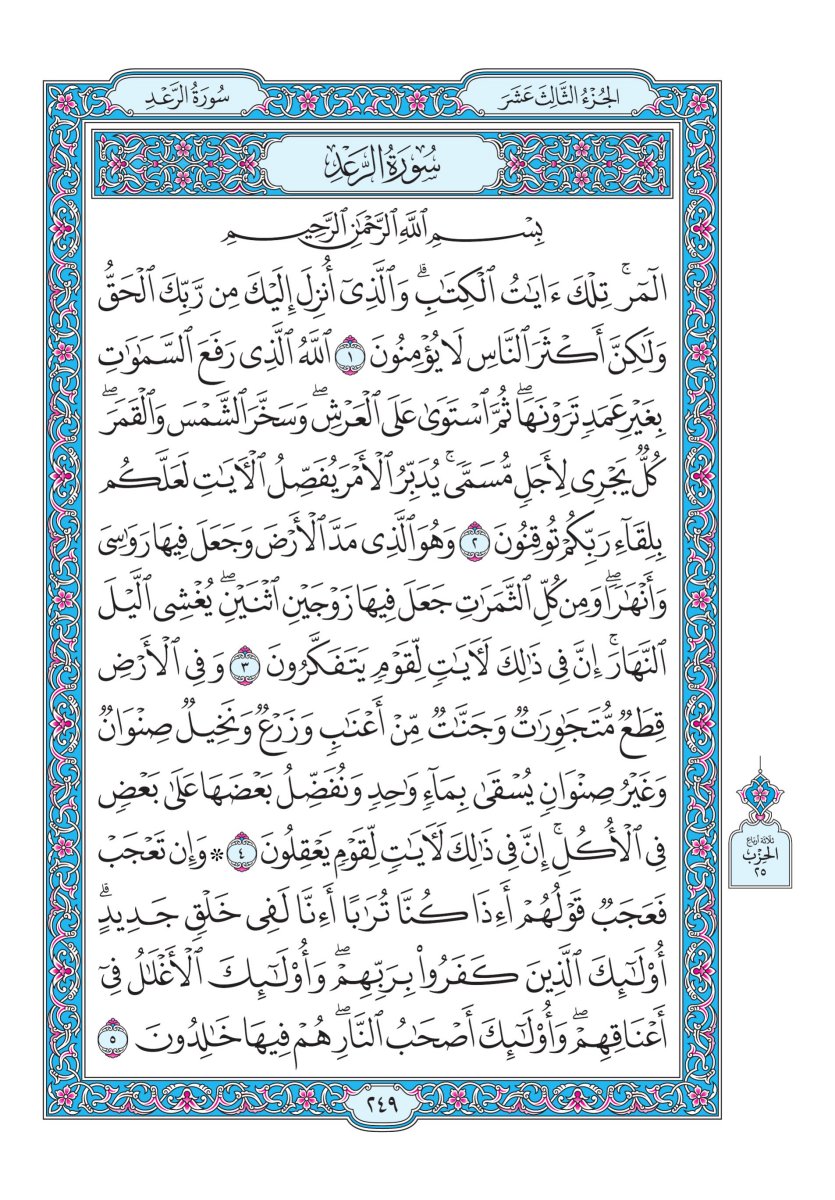 الجُزْءُ الثَّالِثَ عَشَرَ
سُورَةُ الرَّعْدِ
سُورَةُ الرَّعْدِ
بِسْمِ ٱللَّهِ ٱلرَّحْمَٰنِ ٱلرَّحِيمِ
الٓمٓرۚ تِلْكَ ءَايَٰتُ ٱلْكِتَٰبِۗ وَٱلَّذِىٓ أُنزِلَ إِلَيْكَ مِن رَّبِّكَ ٱلْحَقُّ
وَلَٰكِنَّ أَكْثَرَ ٱلنَّاسِ لَا يُؤْمِنُونَ ١ ٱللَّهُ ٱلَّذِى رَفَعَ ٱلسَّمَٰوَٰتِ
بِغَيْرِ عَمَدٍ تَرَوْنَهَاۖ ثُمَّ ٱسْتَوَىٰ عَلَى ٱلْعَرْشِۖ وَسَخَّرَ ٱلشَّمْسَ وَٱلْقَمَرَۖ
كُلٌّ يَجْرِى لِأَجَلٍ مُّسَمًّىۚ يُدَبِّرُ ٱلْأَمْرَ يُفَصِّلُ ٱلْأٓيَٰتِ لَعَلَّكُم
بِلِقَآءِ رَبِّكُمْ تُوقِنُونَ ٢ وَهُوَ ٱلَّذِى مَدَّ ٱلْأَرْضَ وَجَعَلَ فِيهَا رَوَٰسِىَ
وَأَنْهَٰرًاۖ وَمِن كُلِّ ٱلثَّمَرَٰتِ جَعَلَ فِيهَا زَوْجَيْنِ ٱثْنَيْنِۖ يُغْشِى ٱلَّيْلَ
ٱلنَّهَارَۚ إِنَّ فِى ذَٰلِكَ لَأٓيَٰتٍ لِّقَوْمٍ يَتَفَكَّرُونَ ٣ وَفِى ٱلْأَرْضِ
قِطَعٌ مُّتَجَٰوِرَٰتٌ وَجَنَّٰتٌ مِّنْ أَعْنَٰبٍ وَزَرْعٌ وَنَخِيلٌ صِنْوَانٌ
وَغَيْرُ صِنْوَانٍ يُسْقَىٰ بِمَآءٍ وَٰحِدٍ وَنُفَضِّلُ بَعْضَهَا عَلَىٰ بَعْضٍ
فِى ٱلْأُكُلِۚ إِنَّ فِى ذَٰلِكَ لَأٓيَٰتٍ لِّقَوْمٍ يَعْقِلُونَ ٤ * وَإِن تَعْجَبْ
فَعَجَبٌ قَوْلُهُمْ أَءِذَا كُنَّا تُرَٰبًا أَءِنَّا لَفِى خَلْقٍ جَدِيدٍۗ
أُو۟لَٰٓئِكَ ٱلَّذِينَ كَفَرُوا۟ بِرَبِّهِمْۖ وَأُو۟لَٰٓئِكَ ٱلْأَغْلَٰلُ فِىٓ
أَعْنَاقِهِمْۖ وَأُو۟لَٰٓئِكَ أَصْحَٰبُ ٱلنَّارِۖ هُمْ فِيهَا خَٰلِدُونَ ٥
ثلاثة أرباع
الحِزْب
٢٥
٢٤٩